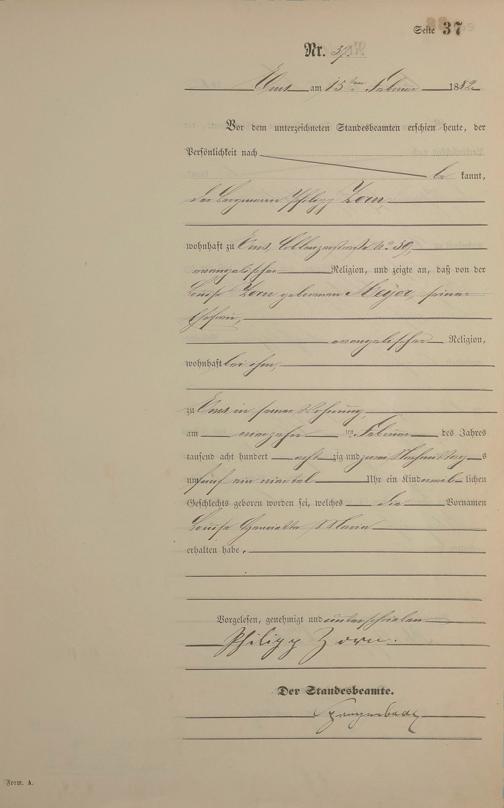 Seite 37
Nr. 37.
Ems am 15ten Februar 1882
Vor dem unterzeichneten Standesbeamten erschien heute, der
Persönlichkeit nach
be kannt,
der Bergmann Philipp Zorn
wohnhaft zu Ems, Coblenzerstraße No 39,
evangelischer Religion, und zeigte an, daß von der
Louise Zorn geborenen Meyer, seiner
Ehefrau,
evangelischer Religion,
wohnhaft bei ihm,
zu Ems in seiner Wohnung,
am vierzehn ten Februar des Jahres
tausend acht hundert acht zig und zwei Nachmittag s
um fünf ein viertel Uhr ein Kind weib lichen
Geschlechts geboren worden sei, welches die Vornamen
Louise Henriette Maria
erhalten habe.
Vorgelesen, genehmigt und unterschrieben
Philipp Zorn.
Der Standesbeamte.
Form. A.